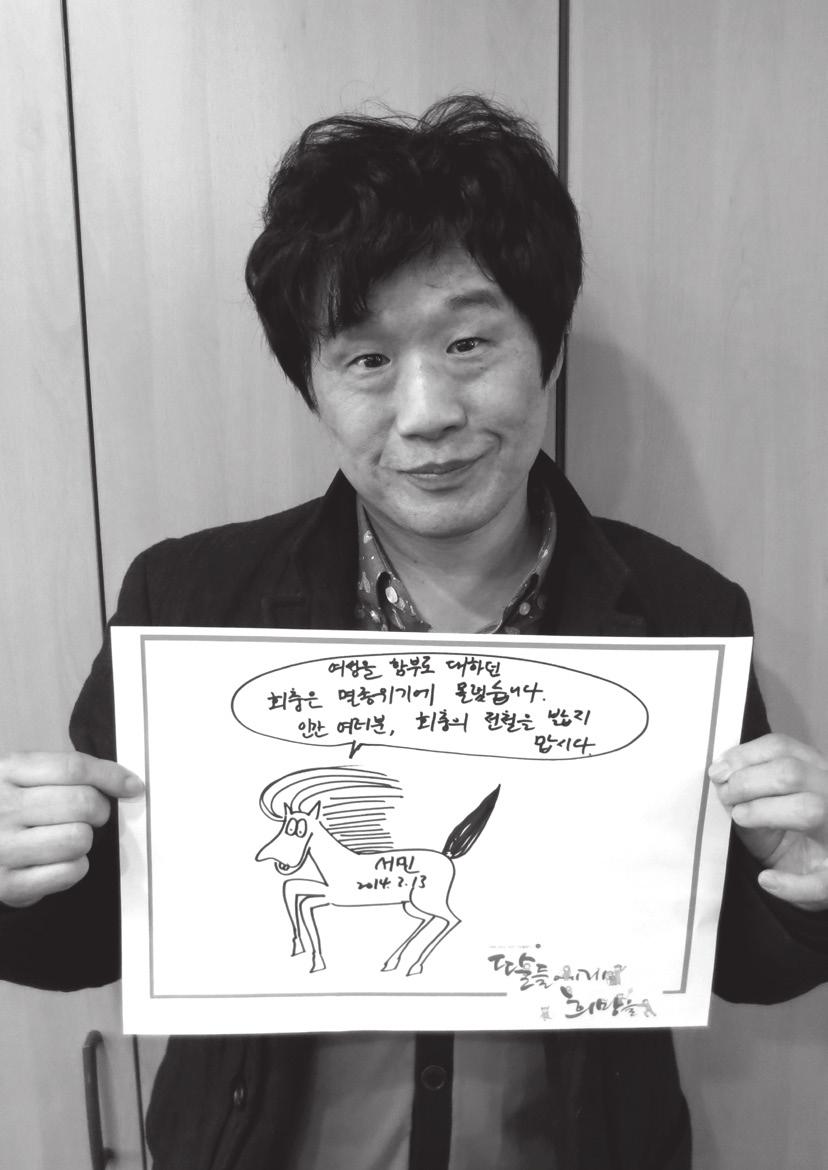 여성을 함부로 대하던
회충은 멸종위기에 몰렸습니다.
인간 여러분, 회충의 전철을 밟지
맙시다.
서민
2014. 2. 13
딸들에게
희망을